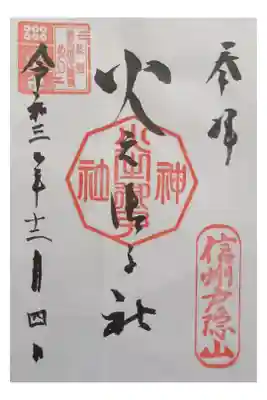 奉拝
信州戸隠山
火之御子社
神社
令和三年十二月四日